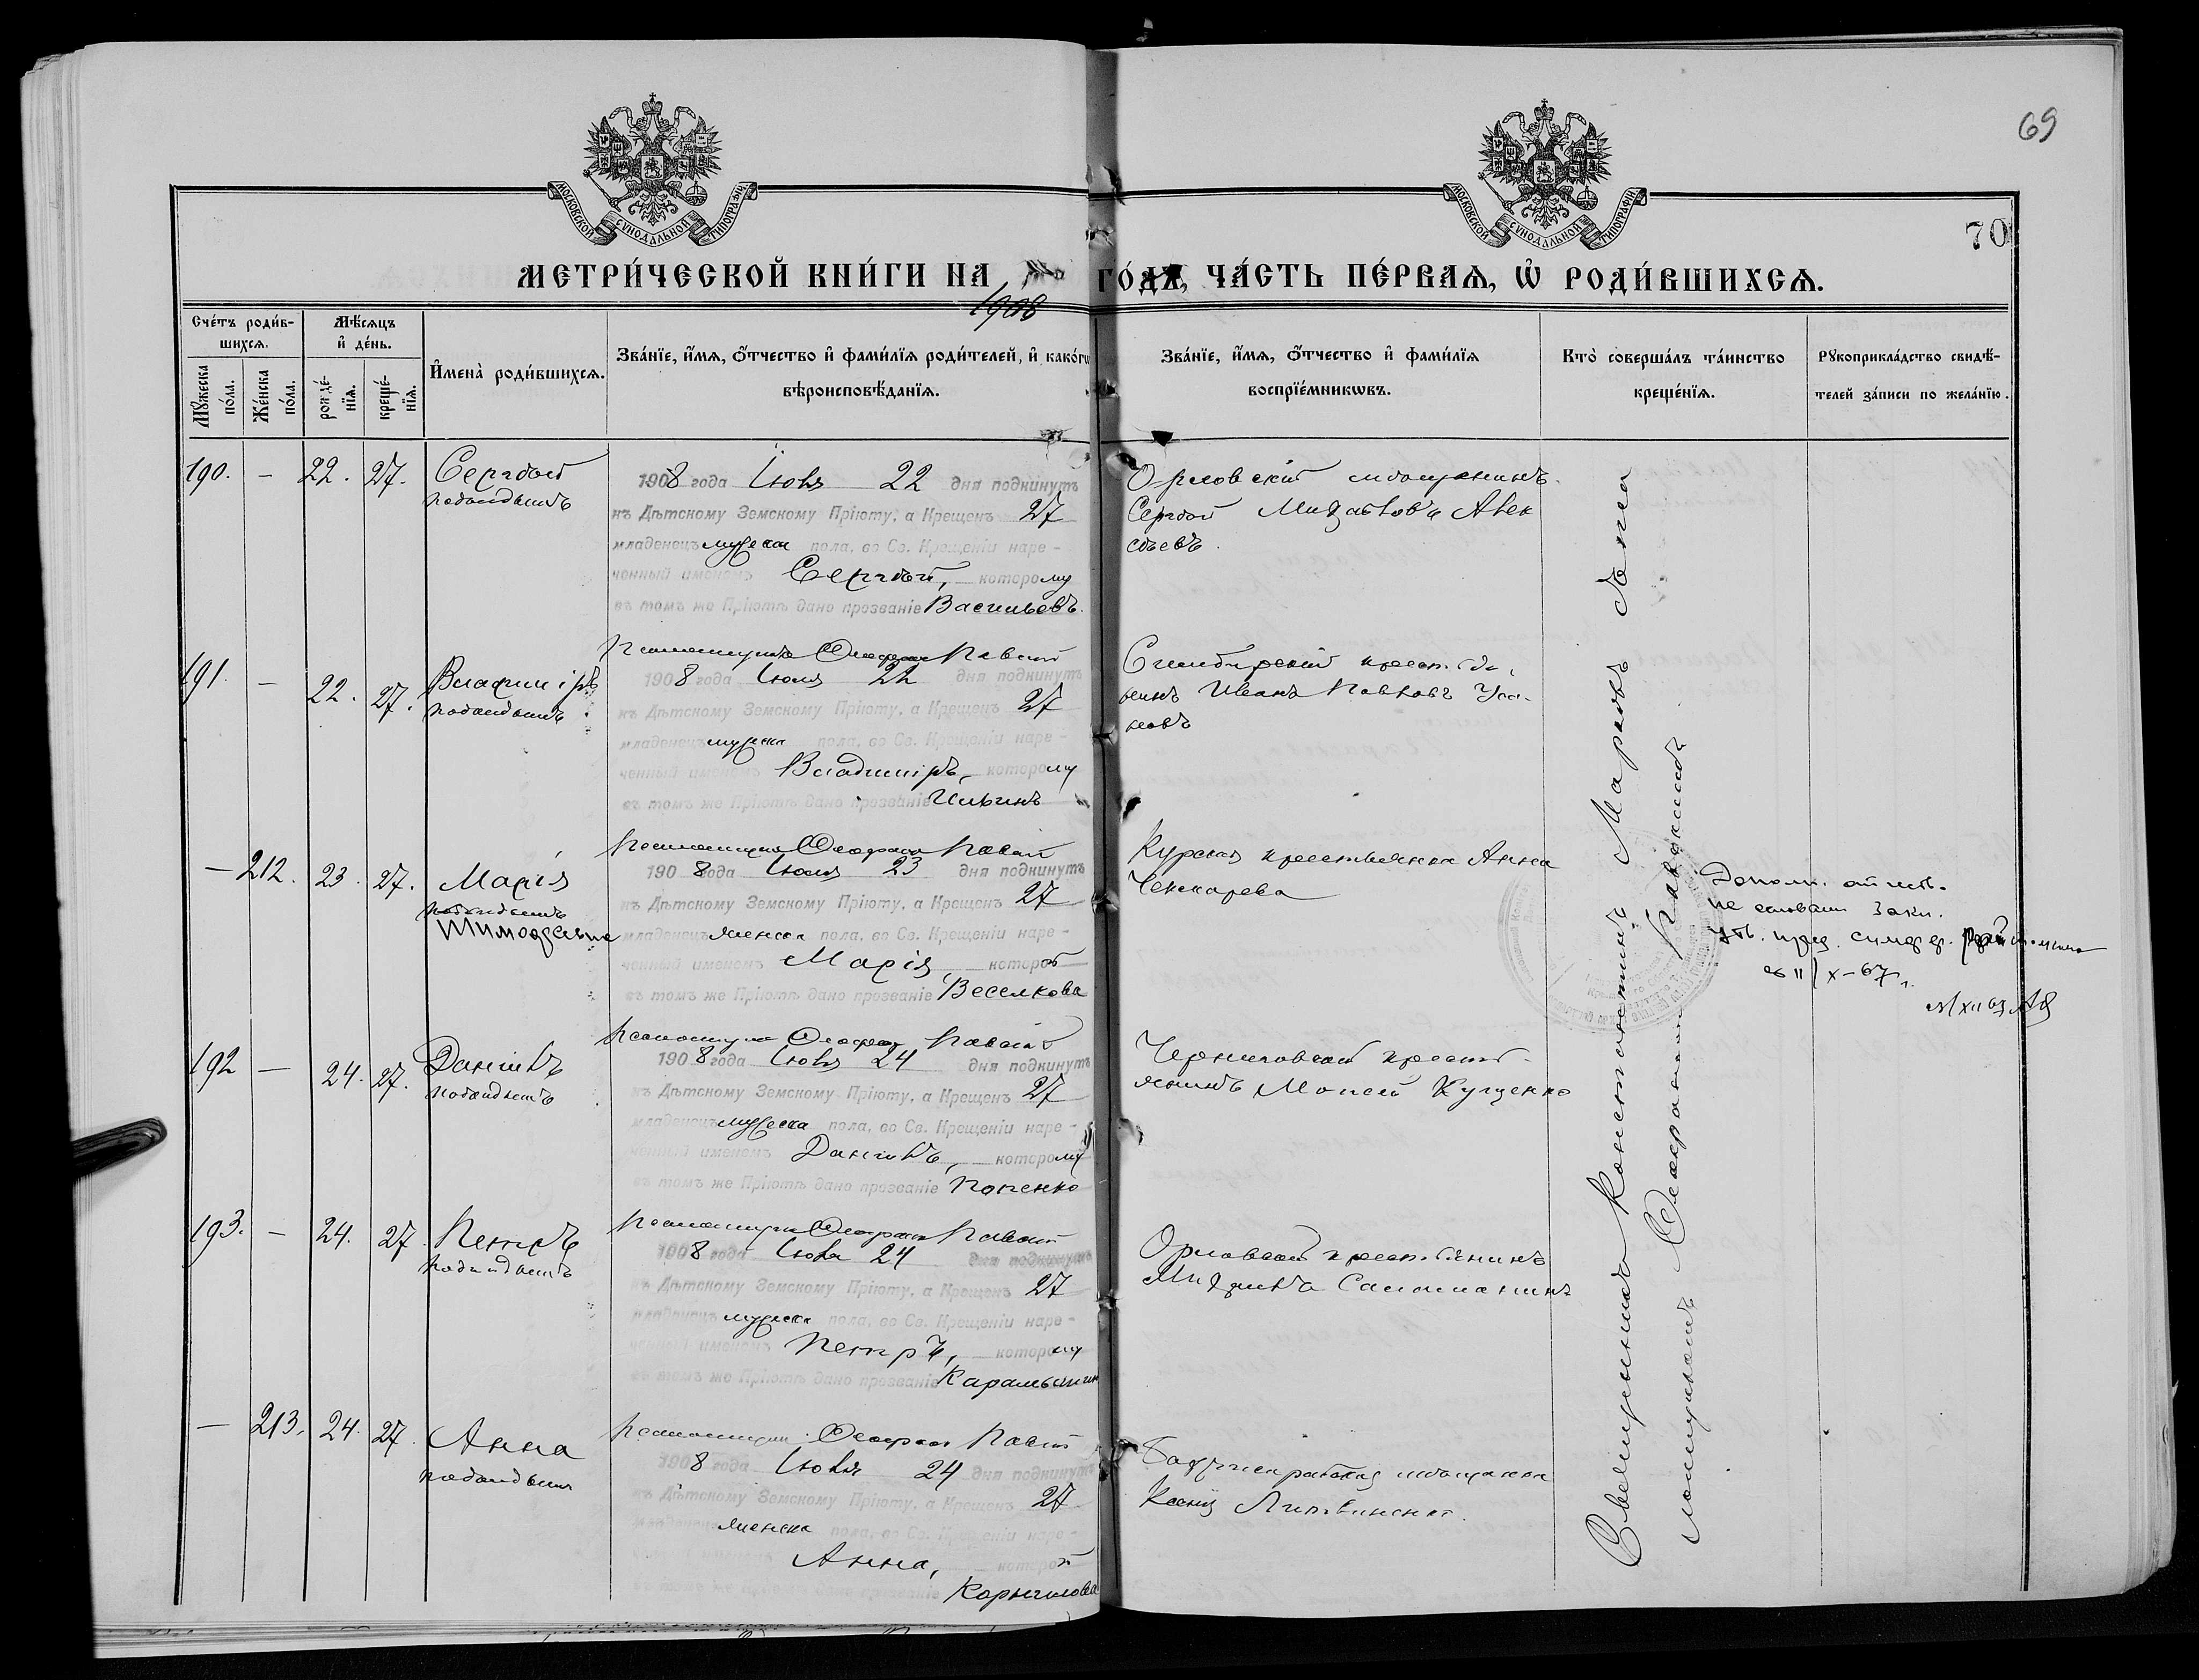 69
МОСКОВСКОЙ СѴНОДАЛЬНОЙ ТИПОГРАФІИ
МОСКОВСКОЙ СѴНОДАЛЬНОЙ ТИПОГРАФІИ
70
МЕТРИ́ЧЕСКОЙ КНИ́ГИ НА 1908 ГО́ДЪ, ЧА́СТЬ ПЕ́РВАѦ, Ѡ҆ РОДИ́ВШИХСѦ.
Сче́тъ роди́в-
шихсѧ.
Мꙋ́жеска по́ла.
Же́нска по́ла.
Мѣ́сѧцъ и҆ де́нь.
рожде́-нїѧ.
креще́-нїѧ.
И҆мена̀ роди́вшихсѧ.
Зва́нїе, и҆́мѧ, ѻ҆́тчество и҆ фами́лїѧ роди́телей, и҆ како́гѡ
вѣроисповѣ́данїѧ.
Зва́нїе, и҆́мѧ, ѻ҆́тчество и҆ фами́лїѧ
воспрїе́мникѡвъ.
Кто̀ соверша́лъ та́инство
креще́нїѧ.
Рꙋкоприкла́дство свидѣ́-
телей за́писи по жела́нїю.
190. — 22. 27. Сергѣй
подкидышъ
1908 года Іюля 22 дня подкинутъ
къ Дѣтскому Земскому Пріюту, а Крещенъ 27
младенецъ мужеска пола, во Св. Крещеніи наре-
ченный именемъ Сергѣй, которому
въ томъ же Пріютѣ дано прозваніе Васильевъ.
Орловскій мѣщанинъ
Сергѣй Михайловъ Алек
сѣевъ.
191. — 22. 27. Владиміръ
подкидышъ
Псаломщикъ Павскій
1908 года Іюля 22 дня подкинутъ
къ Дѣтскому Земскому Пріюту, а Крещенъ 27
младенецъ мужеска пола, во Св. Крещеніи наре-
ченный именемъ Владиміръ, которому
въ томъ же Пріютѣ дано прозваніе Ильинъ
Симбирскій крестья
нинъ Иванъ Павловъ
— 212. 23. 27. Марія
подкидышъ
Тимофеевна
Псаломщикъ Павскій
1908 года Іюля 23 дня подкинутъ
къ Дѣтскому Земскому Пріюту, а Крещенъ 27
младенецъ женска пола, во Св. Крещеніи наре-
ченный именемъ Марія, которой
въ томъ же Пріютѣ дано прозваніе Веселкова
Курская крестьянка Анна
Дополн. отчеств.
на основании Закл.
XII 67
192 — 24. 27. Даніилъ
подкидышъ
Псаломщикъ Павскій
1908 года Іюля 24 дня подкинутъ
къ Дѣтскому Земскому Пріюту, а Крещенъ 27
младенецъ мужеска пола, во Св. Крещеніи наре-
ченный именемъ Даніилъ, которому
въ томъ же Пріютѣ дано прозваніе Попенко
Черниговскій крестья
нинъ Моисей Кущенко
193. — 24. 27 Петръ
подкидышъ
Псаломщикъ Павскій
1908 года Іюля 24 дня подкинутъ
къ Дѣтскому Земскому Пріюту, а Крещенъ 27
младенецъ мужеска пола, во Св. Крещеніи наре-
ченный именемъ Петръ, которому
въ томъ же Пріютѣ дано прозваніе
Орловскій крестьянинъ
Михаилъ
— 213. 24. 27. Анна
подкидышъ
Псаломщикъ Павскій
1908 года Іюля 24 дня подкинутъ
къ Дѣтскому Земскому Пріюту, а Крещенъ 27
младенецъ женска пола, во Св. Крещеніи наре-
Анна, которой
въ томъ же Пріютѣ дано прозваніе Корнилова
мѣщанка
Ксенія Литвинская.
Священникъ Константинъ Марковъ съ
псаломщикомъ